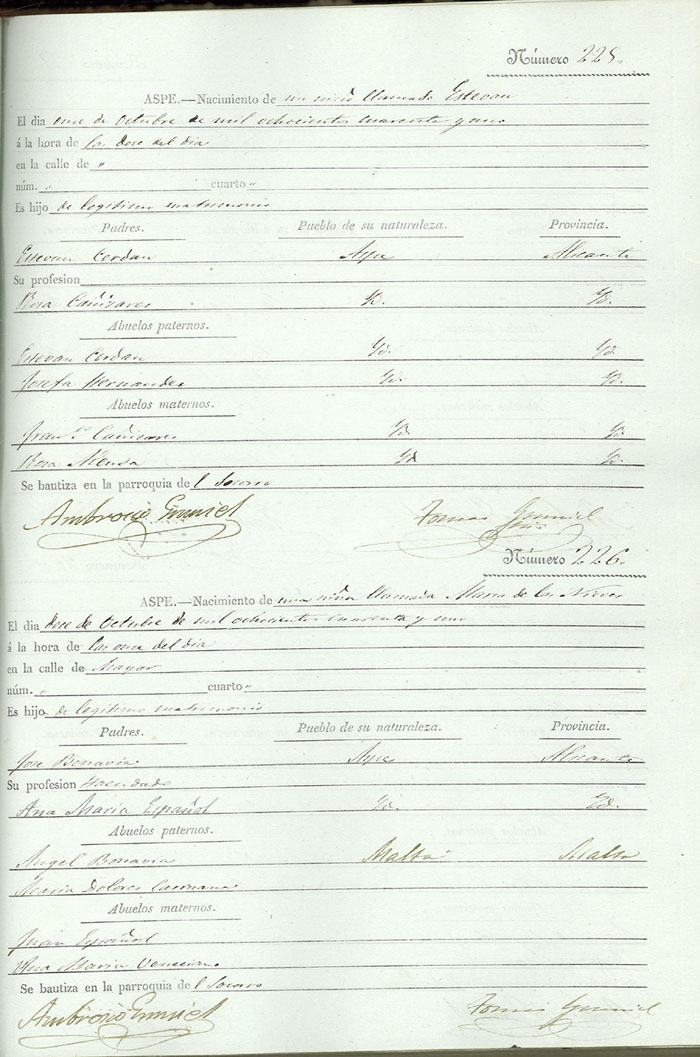 Número 225.
ASPE.—Nacimiento de un niño llamado Estevan
El dia once de Octubre de mil ochocientos cuarenta y uno
á la hora de las doce del dia
en la calle de "
núm. " cuarto "
Es hijo de legitimo matrimonio
Padres. Pueblo de su naturaleza. Provincia.
Estevan Cerdan Aspe Alicante
Su profesion
Rosa Cañizares Yd. Yd.
Abuelos paternos.
Estevan Cerdan Yd. Yd.
Josefa Hernandez Yd. Yd.
Abuelos maternos.
Fran.co Cañizares Yd. Yd.
Rosa Yd. Yd.
Se bautiza en la parroquia de l Socorro
Ambrosio
Tomas
Número 226.
ASPE.—Nacimiento de una niña llamada Maria de las Nieves
El dia doce de Octubre de mil ochocientos cuarenta y uno
á la hora de las once del dia
en la calle de Mayor
núm. " cuarto "
Es hijo de legitimo matrimonio
Padres. Pueblo de su naturaleza. Provincia.
Jose Bonavia Aspe Alicante
Su profesion Hacendado
Ana Maria Español Yd. Yd.
Abuelos paternos.
Angel Bonavia Malta Malta
Maria Dolores Caruana
Abuelos maternos.
Juan Español
Ana Maria
Se bautiza en la parroquia de l Socorro
Ambrosio
Tomas